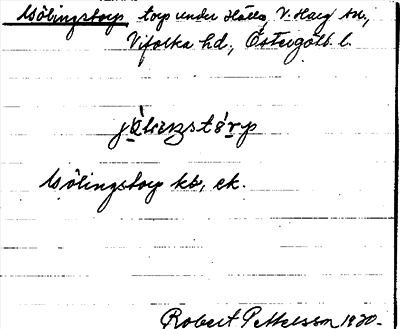 Mölingstorp torp under Hålla, V. Harg sn.,
Vifolka hd., Östergötl. l.
Mölingstorp kb, ek.
Robert Pettersson 1930.